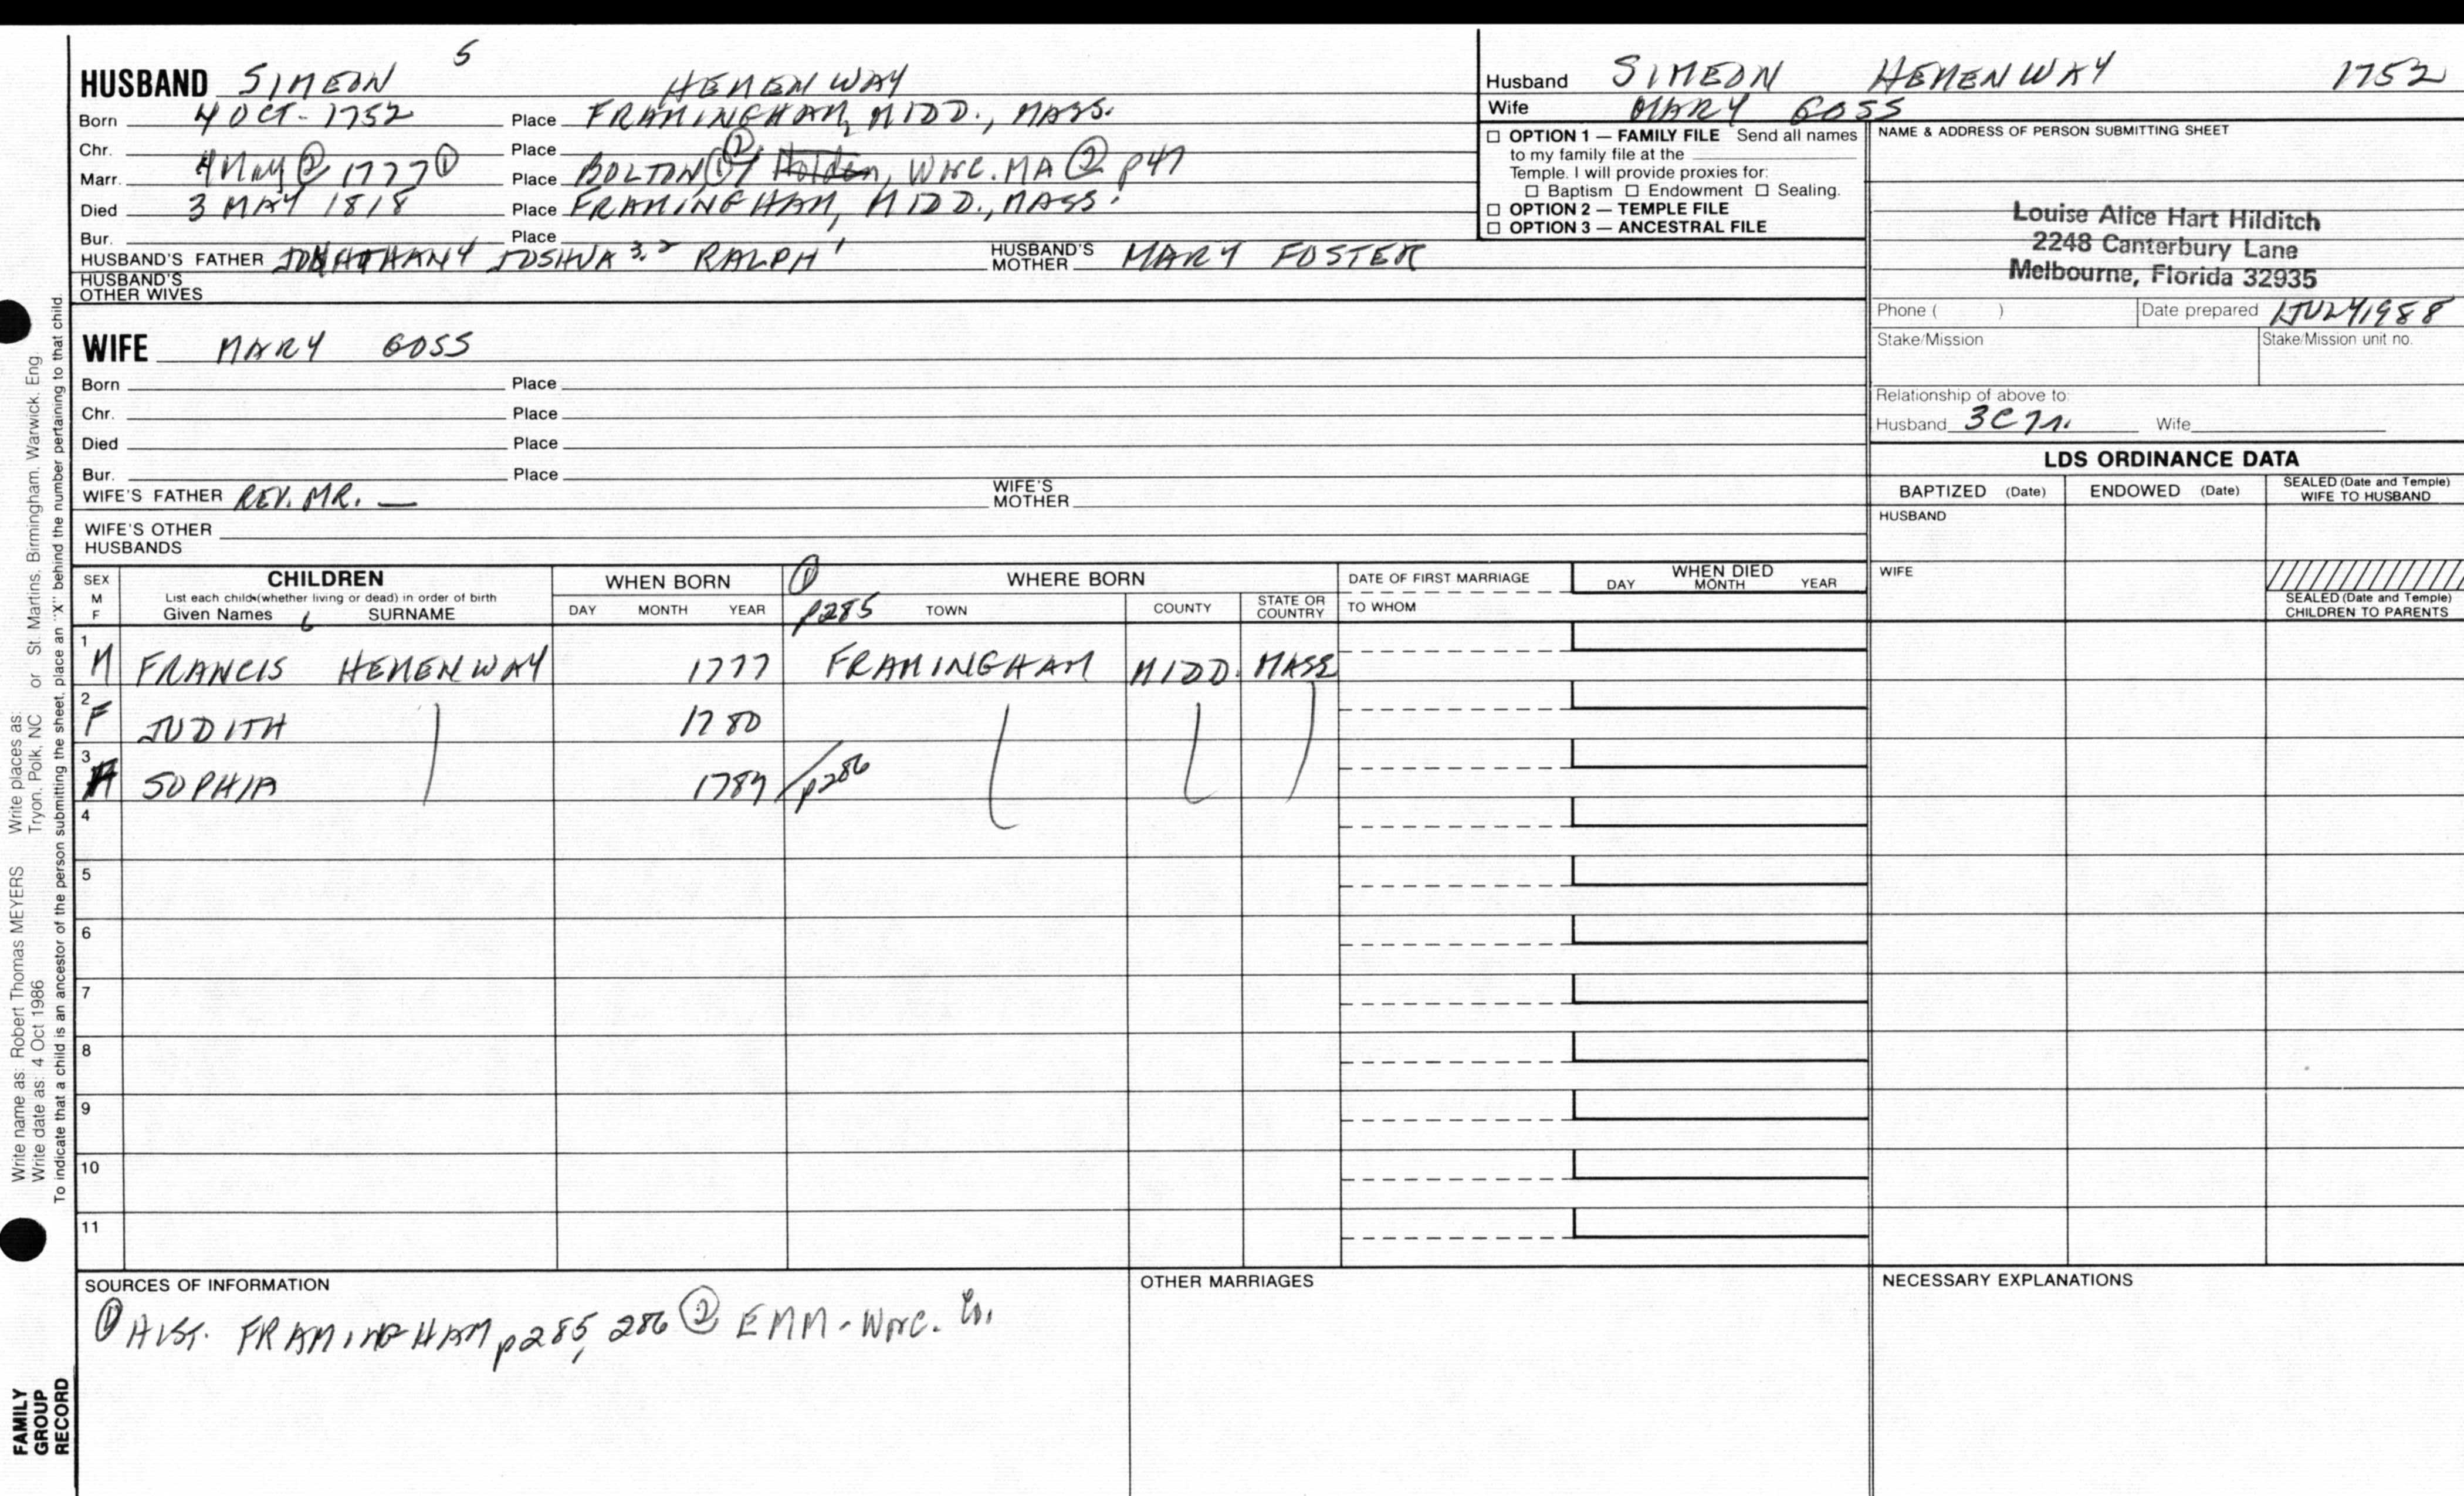 HUSBAND SIMEON 5 HEMENWAY
Born 4 OCT. 1752 Place FRAMINGHAM, MIDD., MASS.
Chr. Place
Marr. 4 May ② 1777 ① Place BOLTON ① / ② Holden, Worc. MA ② p47
Died 3 MAY 1818 Place FRAMINGHAM, MIDD., MASS.
Bur. Place
HUSBAND'S FATHER JONATHAN 4 JOSHUA 3,2 RALPH 1 HUSBAND'S MOTHER MARY FOSTER
HUSBAND'S OTHER WIVES
Husband SIMEON HEMENWAY 1752
Wife MARY GOSS
☐ OPTION 1 — FAMILY FILE Send all names
to my family file at the
Temple. I will provide proxies for:
☐ Baptism ☐ Endowment ☐ Sealing.
☐ OPTION 2 — TEMPLE FILE
☐ OPTION 3 — ANCESTRAL FILE
NAME & ADDRESS OF PERSON SUBMITTING SHEET
Louise Alice Hart Hilditch
2248 Canterbury Lane
Melbourne, Florida 32935
Phone ( ) Date prepared 1 JULY 1988
Stake/Mission Stake/Mission unit no.
Relationship of above to:
Husband 3C7r. Wife
WIFE MARY GOSS
Born Place
Chr. Place
Died Place
Bur. Place
WIFE'S FATHER REV. MR. — WIFE'S MOTHER
WIFE'S OTHER HUSBANDS
LDS ORDINANCE DATA
BAPTIZED (Date) ENDOWED (Date) SEALED (Date and Temple) WIFE TO HUSBAND
HUSBAND
WIFE
SEALED (Date and Temple) CHILDREN TO PARENTS
SEX M F CHILDREN WHEN BORN ① WHERE BORN DATE OF FIRST MARRIAGE WHEN DIED
List each child (whether living or dead) in order of birth DAY MONTH YEAR
Given Names 6 SURNAME DAY MONTH YEAR p285 TOWN COUNTY STATE OR COUNTRY TO WHOM
1 M FRANCIS HEMENWAY 1777 FRAMINGHAM MIDD. MASS
2 F JUDITH 1780
3 SOPHIA 1789 / p286
4
5
6
7
8
9
10
11
SOURCES OF INFORMATION
① HIST. FRAMINGHAM p285, 286 ② EMM - Worc. Co.
OTHER MARRIAGES
NECESSARY EXPLANATIONS
Write name as: Robert Thomas MEYERS Write places as: St. Martins, Birmingham, Warwick, Eng
Write date as: 4 Oct 1986 Tryon, Polk, NC or
To indicate that a child is an ancestor of the person submitting the sheet, place an "X" behind the number pertaining to that child.
FAMILY
GROUP
RECORD